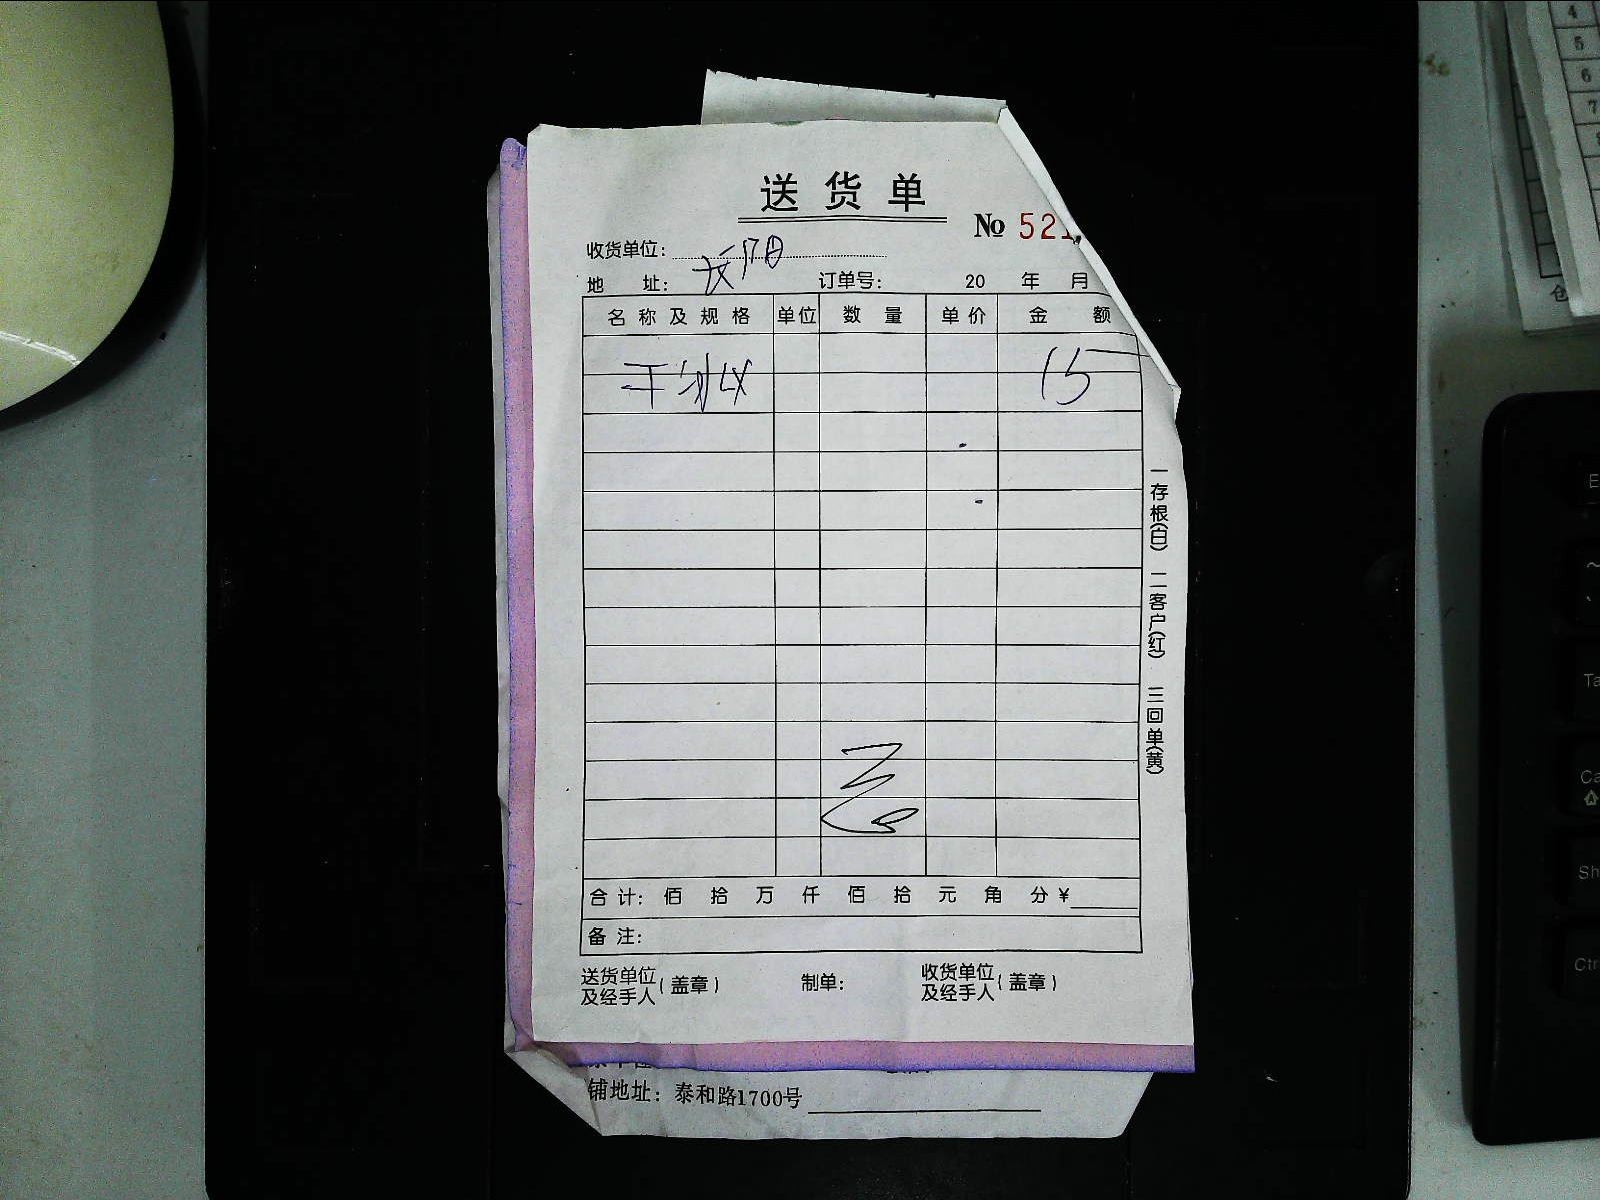 送货单
No 521
收货单位: 长阳
地 址: 订单号: 20 年 月
名称及规格 单位 数量 单价 金额
15
一存根(白) 二客户(红) 三回单(黄)
合计: 佰 拾 万 仟 佰 拾 元 角 分 ¥
备注:
送货单位及经手人(盖章) 制单: 收货单位及经手人(盖章)
铺地址: 泰和路1700号
4
5
6
7
仓